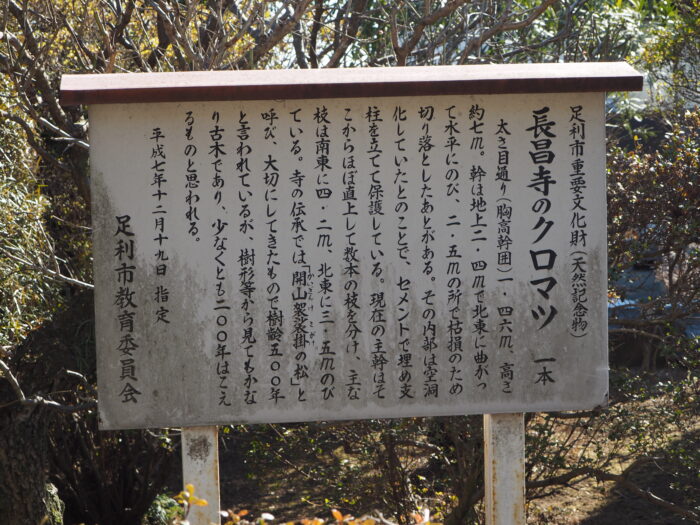 足利市重要文化財（天然記念物）
長昌寺のクロマツ　一本
太さ目通り（胸高幹囲）一・四六m　高さ
約七m。幹は地上二・四mで北東に曲がっ
て水平にのび、二・五mの所で枯損のため
切り落としたあとがある。その内部は空洞
化していたとのことで、セメントで埋め支
柱を立てて保護している。現在の主幹はそ
こからほぼ直上して数本の枝を分け、主な
枝は南東に四・二m、北東に三・五mのび
ている。寺の伝承では「開山袈裟掛の松」と
かいさんけさかけ
呼び、大切にしてきたもので樹齢五〇〇年
と言われているが、樹形等から見てもかな
り古木であり、少なくとも二〇〇年はこえ
るものと思われる。
平成七年十二月十九日　指定
足利市教育委員会